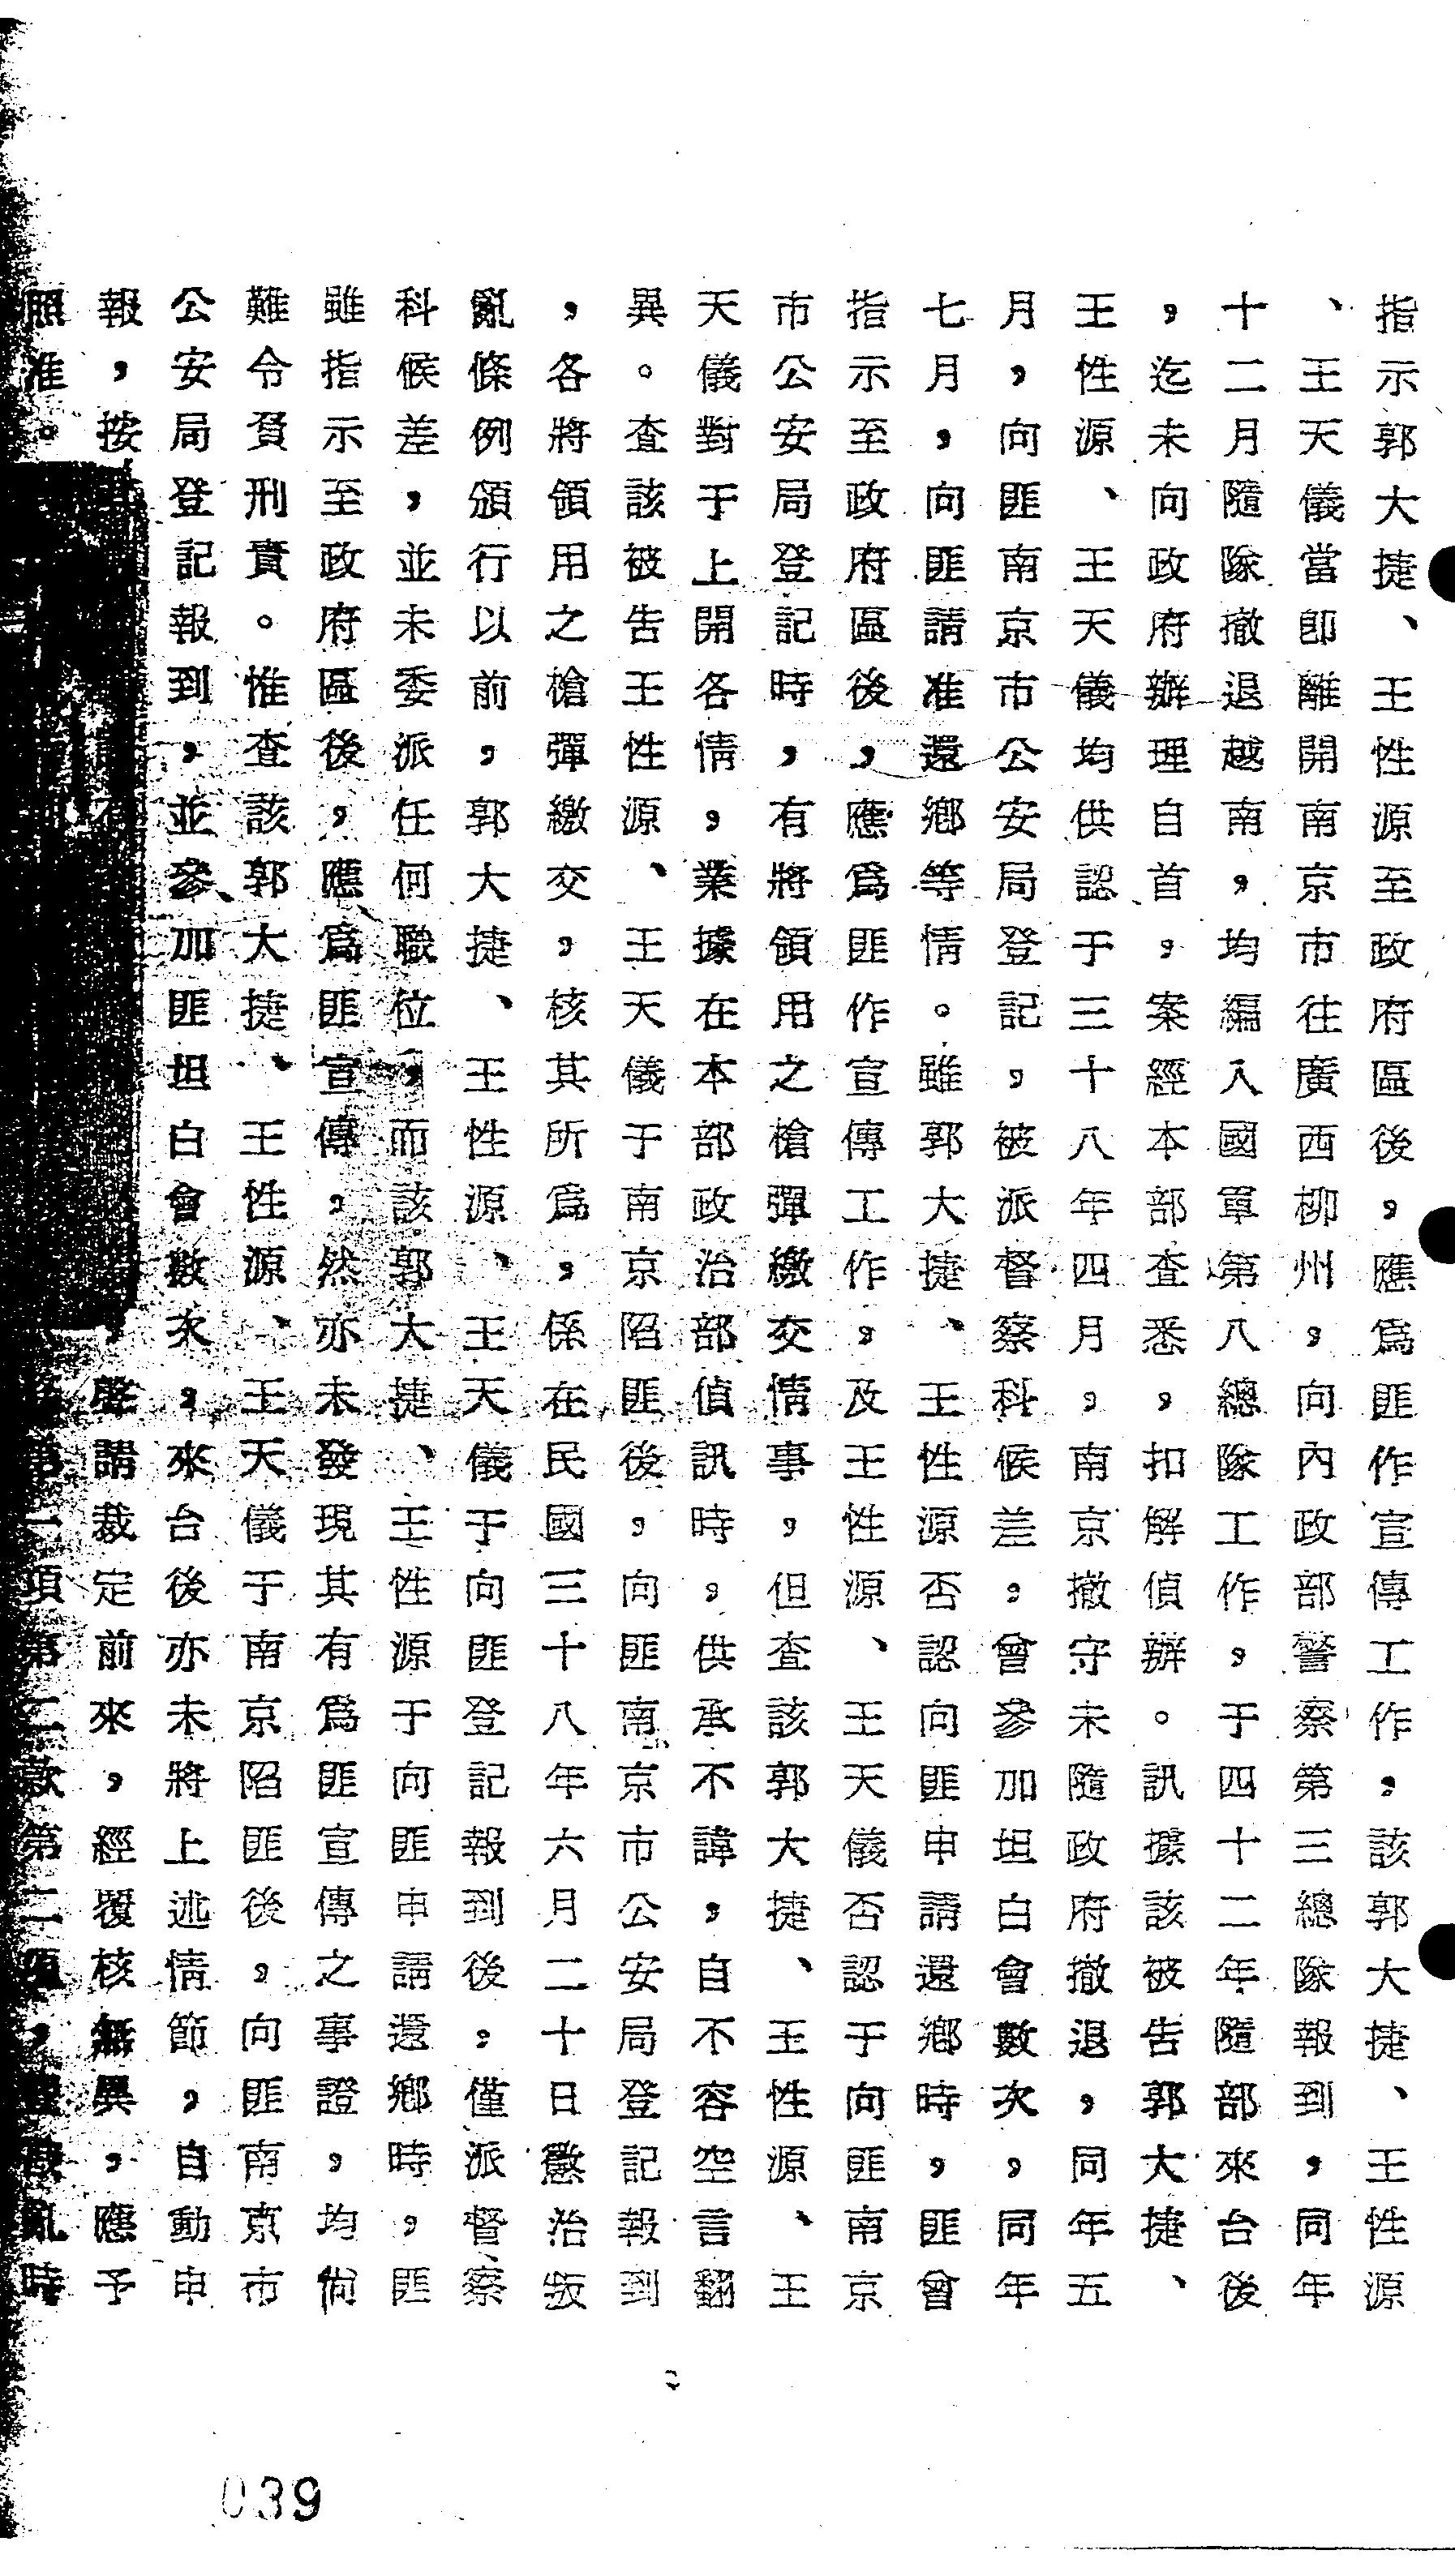 指示郭大捷、王性源至政府區後，應爲匪作宣傳工作，該郭大捷、王性源
、王天儀當即離開南京市往廣西柳州，向內政部警察第三總隊報到，同年
十二月隨隊撤退越南，均編入國軍第八總隊工作，于四十二年隨部來台後
，迄未向政府辦理自首，案經本部查悉，扣解偵辦。訊據該被告郭大捷、
王性源、王天儀均供認于三十八年四月，南京撤守未隨政府撤退，同年五
月，向匪南京市公安局登記，被派督察科候差。曾參加坦白會數次，同年
七月，向匪請准還鄉等情。雖郭大捷、王性源否認向匪申請還鄉時，匪曾
指示至政府區後，應爲匪作宣傳工作，及王性源、王天儀否認于向匪南京
市公安局登記時，有將領用之槍彈繳交情事，但查該郭大捷、王性源、王
天儀對于上開各情，業據在本部政治部偵訊時，供承不諱，自不容空言翻
異。查該被告王性源、王天儀于南京陷匪後，向匪南京市公安局登記報到
，各將領用之槍彈繳交，核其所爲，係在民國三十八年六月二十日懲治叛
亂條例頒行以前，郭大捷、王性源、王天儀于向匪登記報到後，僅派督察
科候差，並未委派任何職位，而該郭大捷、王性源于向匪申請還鄉時，匪
雖指示至政府區後，應爲匪宣傳，然亦未發現其有爲匪宣傳之事證，均尚
難令負刑責。惟查該郭大捷、王性源、王天儀于南京陷匪後，向匪南京市
公安局登記報到，並參加匪坦白會數次，來台後亦未將上述情節，自動申
報，按 聲請裁定前來，經覆核無異，應予
照准。 第一項第二款第二項，亂時
039